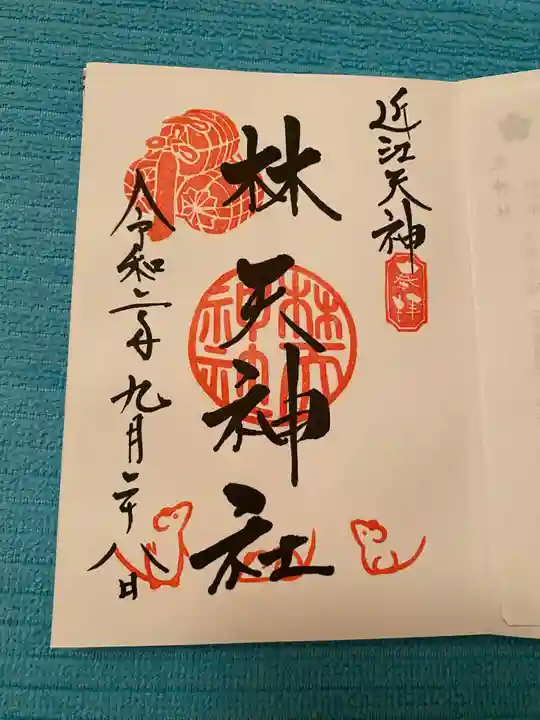 近江天神
参拝
林天神社
林天神社
令和二年九月二十八日